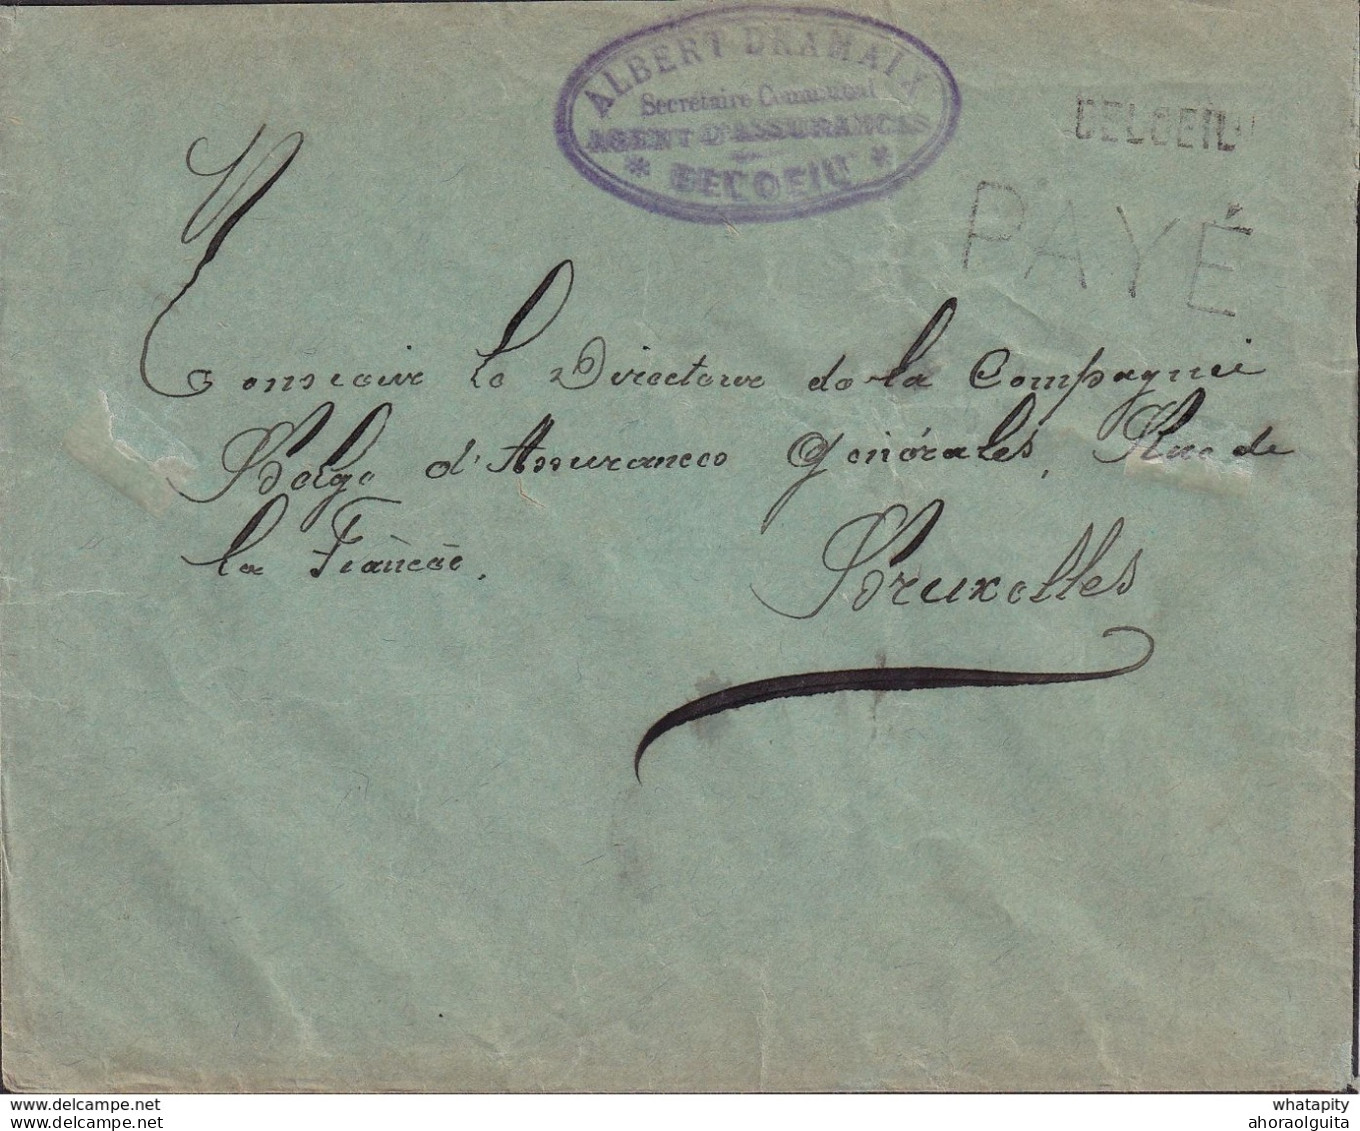 ALBERT DRAMAIX
Secrétaire Communal
AGENT D'ASSURANCES
* BELOEIL *
BELOEIL
PAYÉ
Monsieur le Directeur de la Compagnie
Belge d'Assurances Générales, Rue de
la Fiancée,
Bruxelles
www.delcampe.net
ahoraolguita
whatapity
ahoraolguita